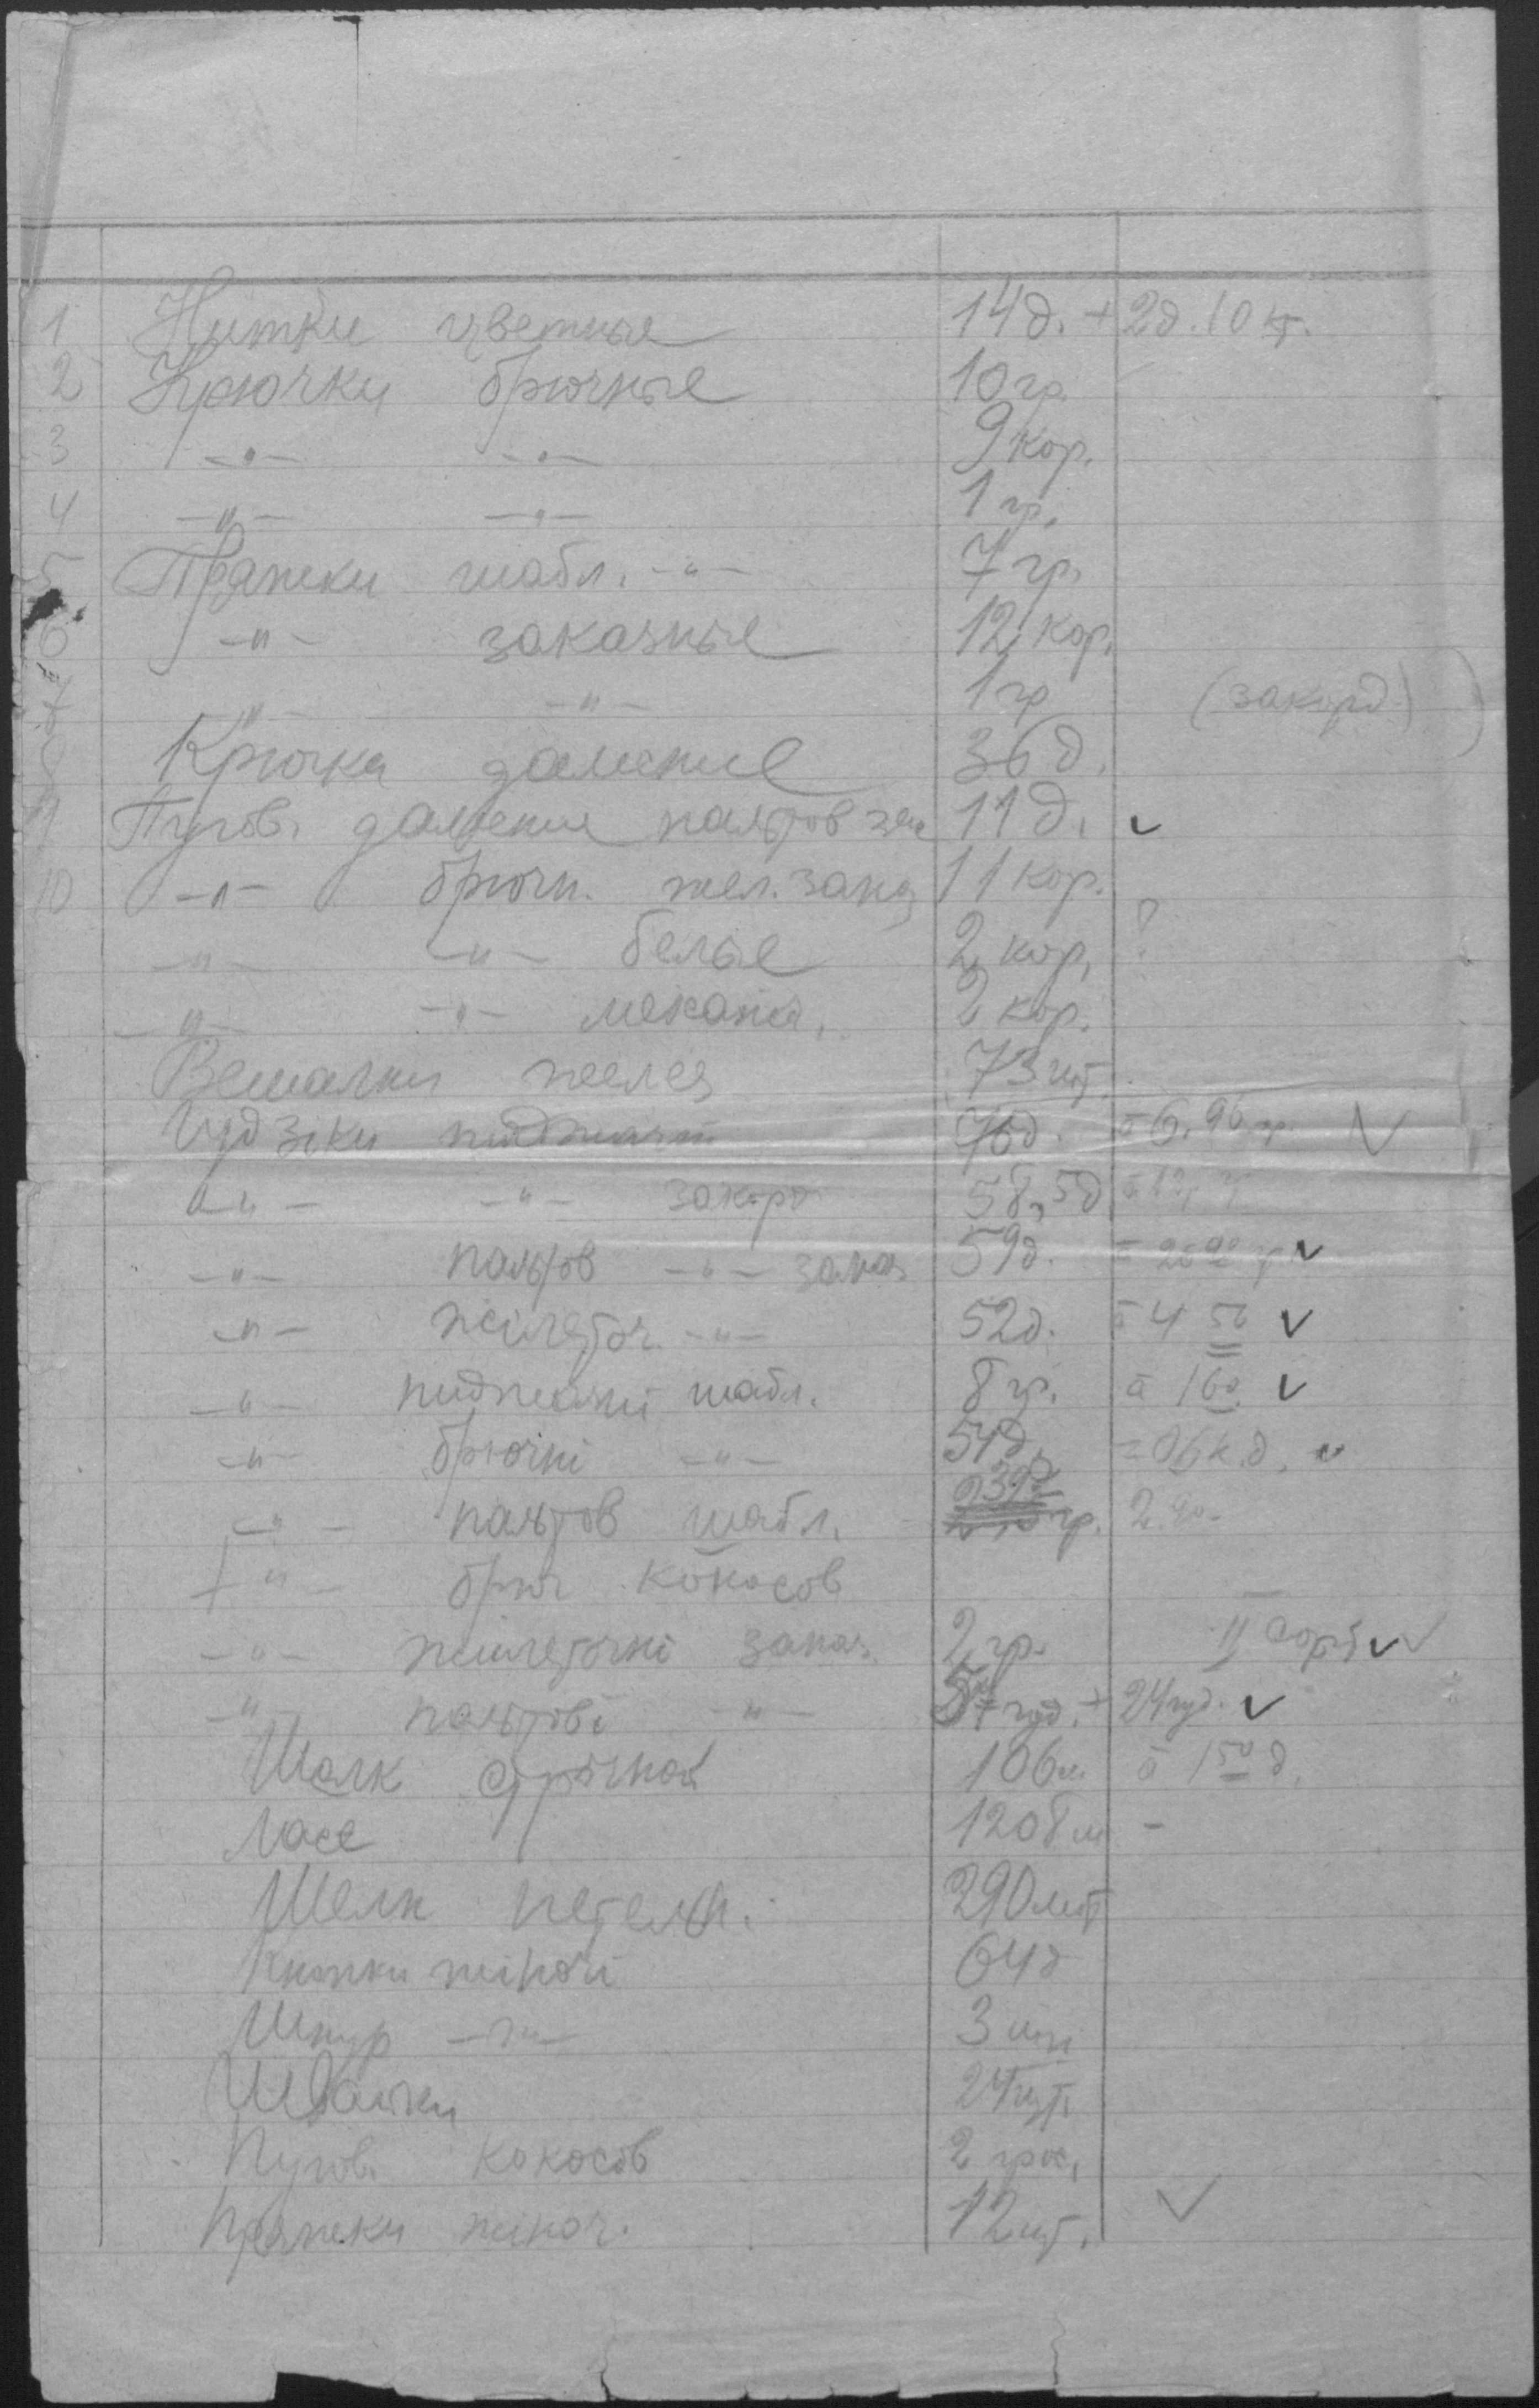 1 Нитки цветные 14д. + 2д. 10 кт.
2 Крючки брючные 10 гр.
3 -"- -"- 9 кор.
4 -"- -"- 1 гр.
5 Пряжки шабл. -"- 7 гр.
6 -"- заказные 12 кор.
7 -"- -"- 1 гр (закорд)
8 Крючки дамские 36 д.
9 Пугов. дамские пальтов 11 д. ✓
10 -"- брючн. жел. заказ 11 кор.
-"- -"- белые 2 кор. ?
-"- -"- механич. 2 кор.
Вешалки желез 73 шт.
Гудзіки піджачні 70д. à 6,96 гр. ✓
-"- -"- закорд 58,5д
-"- пальтов -"- заказ 59д. ✓
-"- жилеточ. -"- 52д. à 4 50 ✓
-"- пиджачні шабл. 8 гр. à 160 ✓
-"- брючні -"- 54д. ✓
-"- пальтов шабл. гр. 2.90
-"- брюч кокосов
-"- жилеточні заказ. 2 гр. II сорт ✓✓
-"- пальтові -"- + 24 гуд. ✓
Шелк строчной 106 м à 1 50 д.
Масе 1208 м -
Шелк петельн. 290 мот
Кнопки жіночі 64д
Шнур -"- 3 шт
Швайки 24 шт.
Пугов. кокосов 2 грос.
Пряжки жіноч. 12 шт. ✓